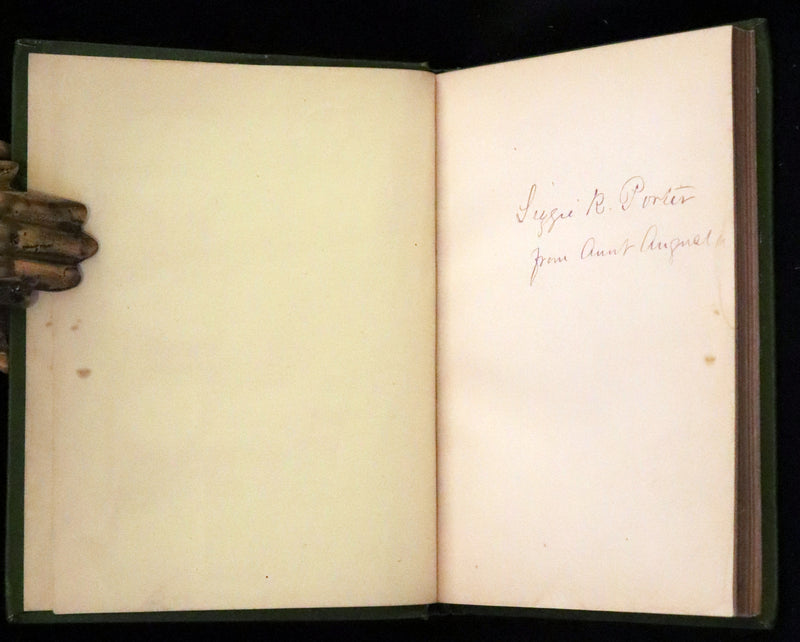 Lizzie R. Porter
from Aunt Augusta